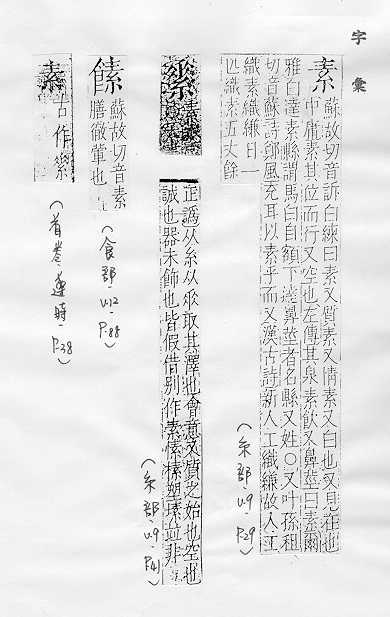 字彙
素 蘇故切音訴白練曰素又質素又情素又白也又見在也
中庸素其位而行又空也左傳其泉素飲又鼻莖曰素爾
雅白達素縣謂馬白自額下達鼻莖者名縣又姓○又叶孫租
切音蘇詩鄘風充耳以素乎而又漢古詩新人工織縑故人工
織素織縑日一
匹織素五丈餘
(糸部·V.9·P.29)
正譌从糸从𠂹取其澤也會意又質之始也空也
誠也器未飾也皆假借別作素愫塑並非
(糸部·V.9·P.41)
䭘 蘇故切音素
膳徹葷也
(食部·V.12·P.88)
素 古作𦃃
(首卷·遵時·P.38)